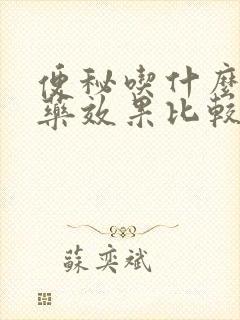 便秘喫什麼
藥效果比較
蘇奕斌